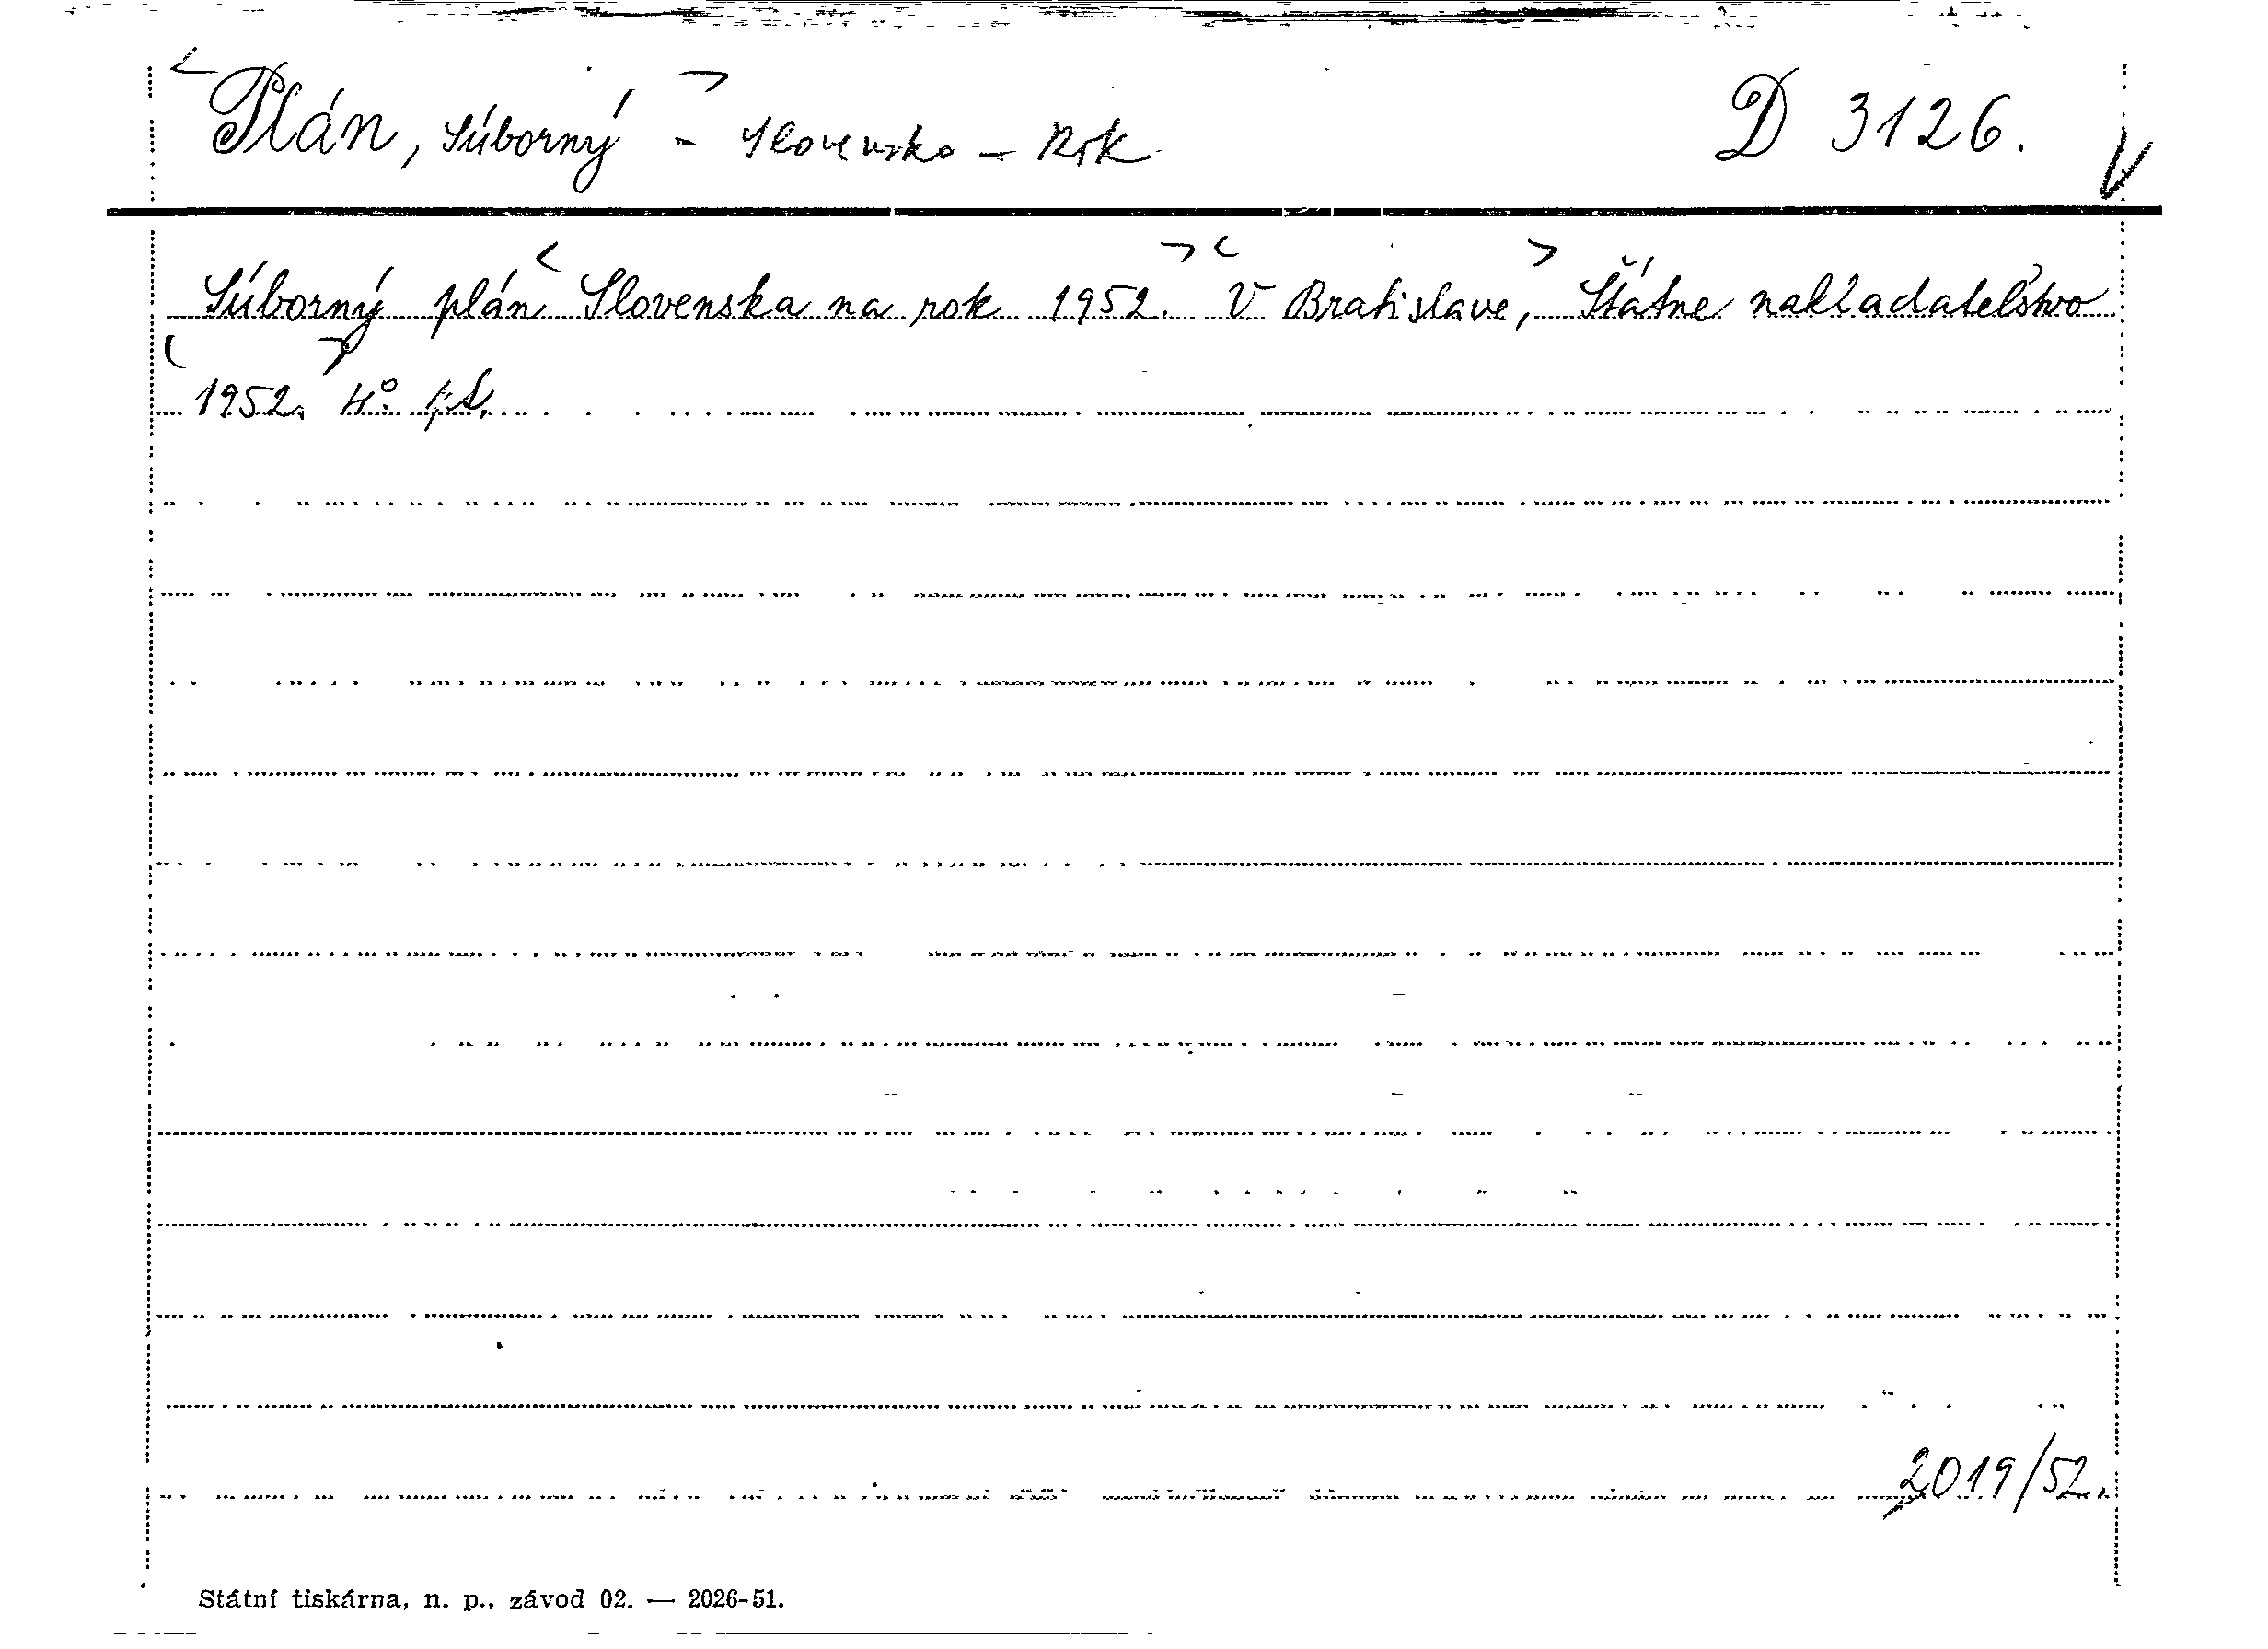 Plán, súborný - Slovensko - Rok D 3126.
Súborný plán Slovenska na rok 1952. V Bratislave, Štátne nakladatelstvo
1952. 4°.
2019/52.
Státní tiskárna, n. p., závod 02. — 2026-51.